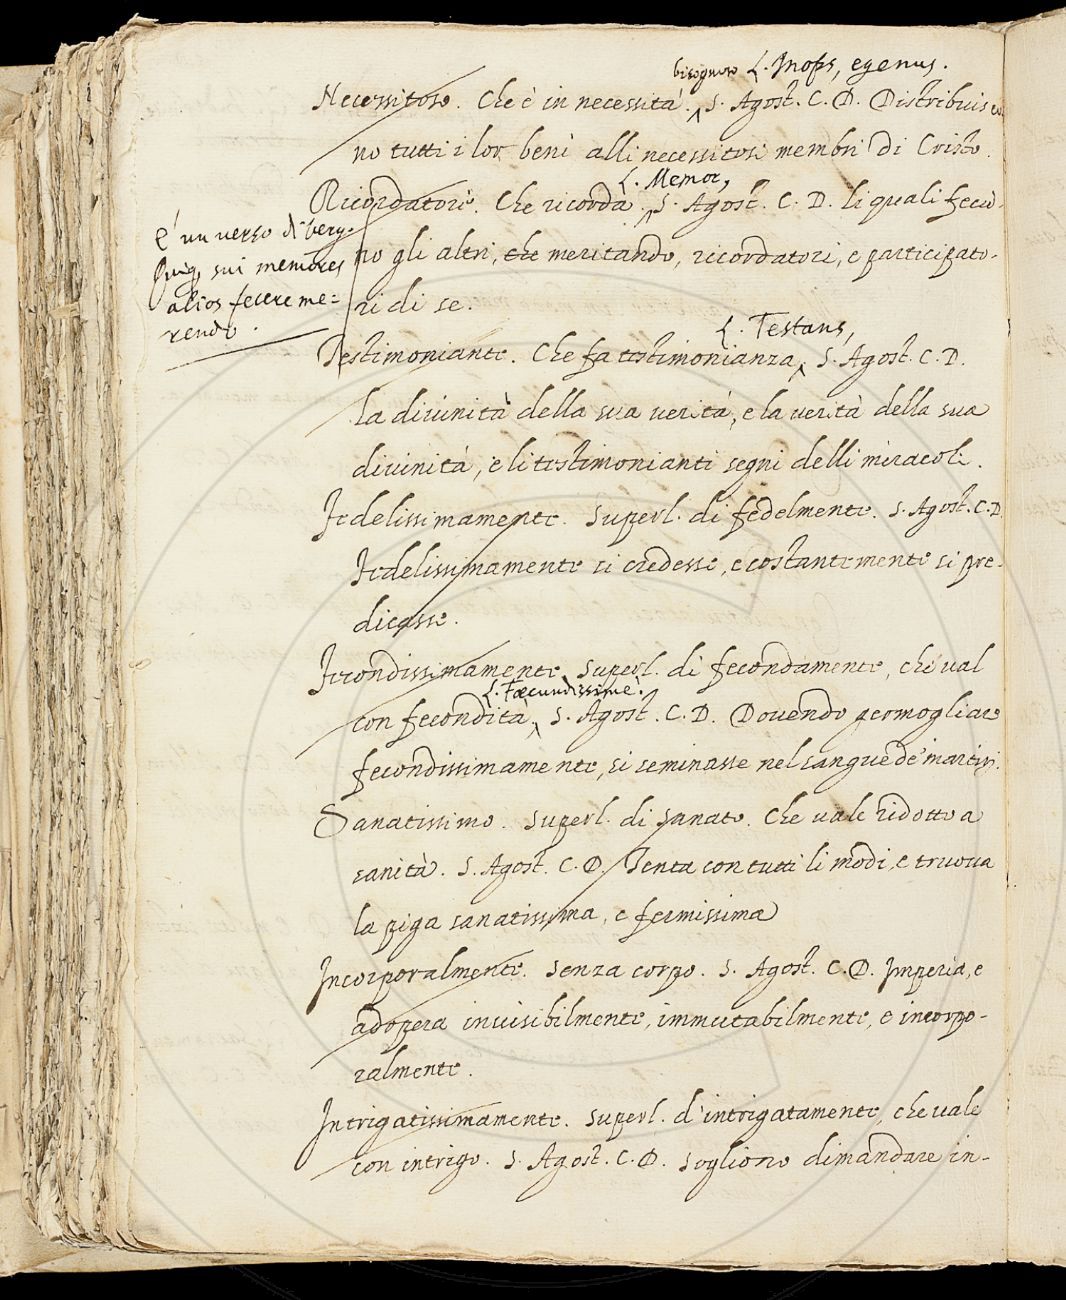 bisognoso L. Inops, egenus.
Necessitoso. Che è in necessità. S. Agost. C. D. Distribuisco
no tutti i lor beni alli necessitosi membri di Cristo.
L. Memor,
Ricordatore. Che ricorda. S. Agost. C. D. li quali fecio-
no gli altri, che meritando, ricordatori, e participato-
ri di se.
È un verso di Verg.
Quiq, sui memores
alios fecere me=
rendo.
L. Testans,
Testimoniante. Che fa testimonianza. S. Agost. C. D.
la divinità della sua verità, e la verità della sua
divinità, e li testimonianti segni delli miracoli.
Fedelissimamente. Superl. di fedelmente. S. Agost. C. D.
Fedelissimamente si credesse, e costantemente si pre-
dicasse.
Fecondissimamente. Superl. di fecondamente, che val
L. Fœcundissimè.
con fecondità. S. Agost. C. D. Dovendo germogliare
fecondissimamente, si seminasse nel sangue de' martiri.
Sanatissimo. Superl. di Sanato. Che vale ridotto a
sanità. S. Agost. C. D. Tenta con tutti li modi, e truova
la piga sanatissima, e fermissima
Incorporalmente. Senza corpo. S. Agost. C. D. Imperia, e
adopera invisibilmente, immutabilmente, e incorpo-
ralmente.
Intrigatissimamente. Superl. d'intrigatamente, che vale
con intrigo. S. Agost. C. D. Sogliono dimandare in-